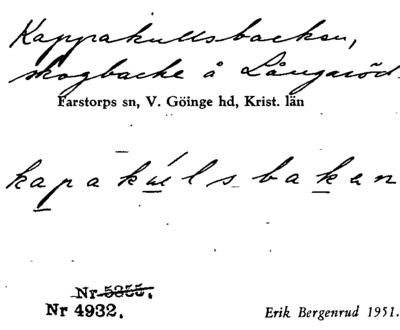 Kappakullsbacken,
skogbacke å Långaröd.
Farstorps sn, V. Göinge hd, Krist. län
kapakúlsbakan
Nr 5355.
Nr 4932.
Erik Bergenrud 1951.